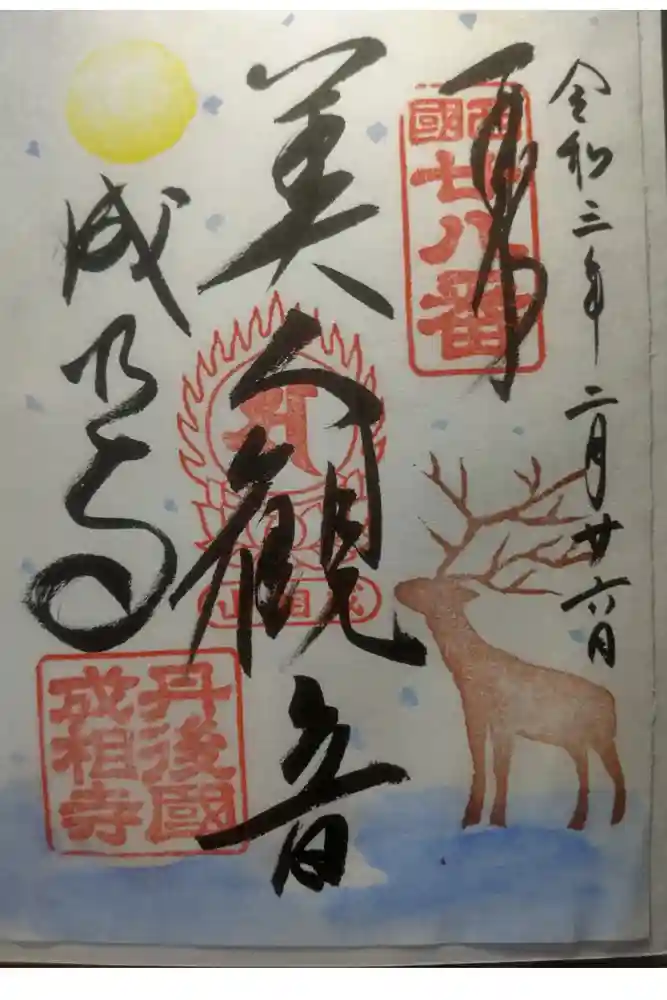 令和三年二月廿六日
西國
廿八番
美人観音
成相山
成相寺
丹後國
成相寺